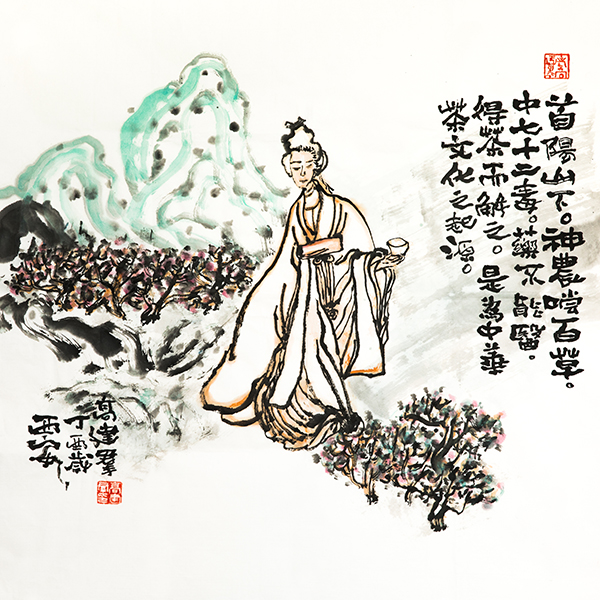 首陽山下。神農嚐百草。
中七十二毒。藥不能醫。
得茶而解之。是為中華
茶文化之起源。
高建羣
丁酉歲
西安